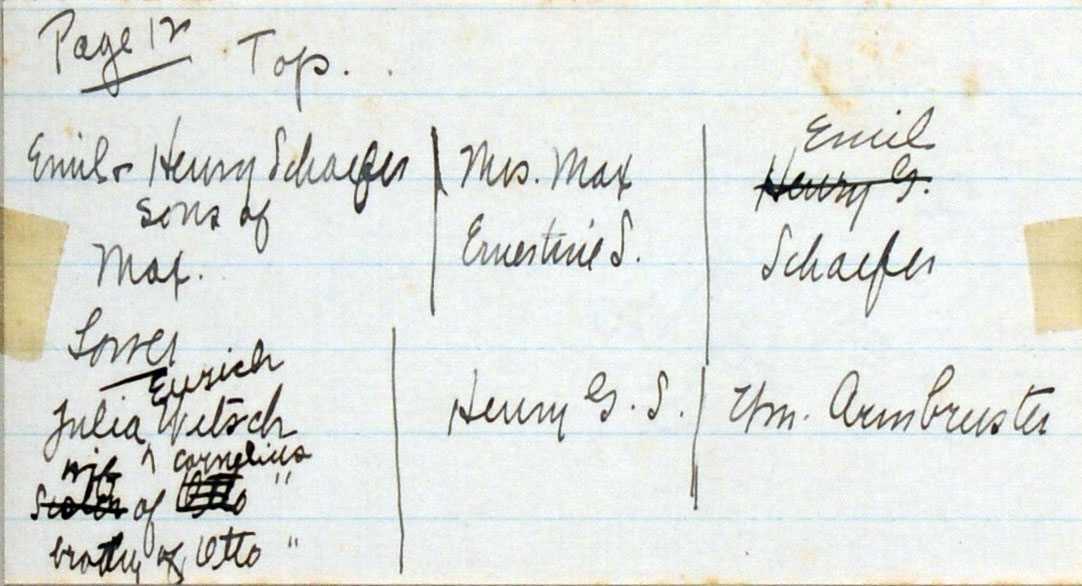 Page 12 Top.
Emil + Henry Schaefer
sons of
Max.
Mrs. Max
Ernestine S.
Emil
Henry G.
Schaefer
Lower
Emrich
Julia ^ Wetsch
wife cornelius
Sister of Otto "
brother of Otto "
Henry G. S.
Wm. Armbruster